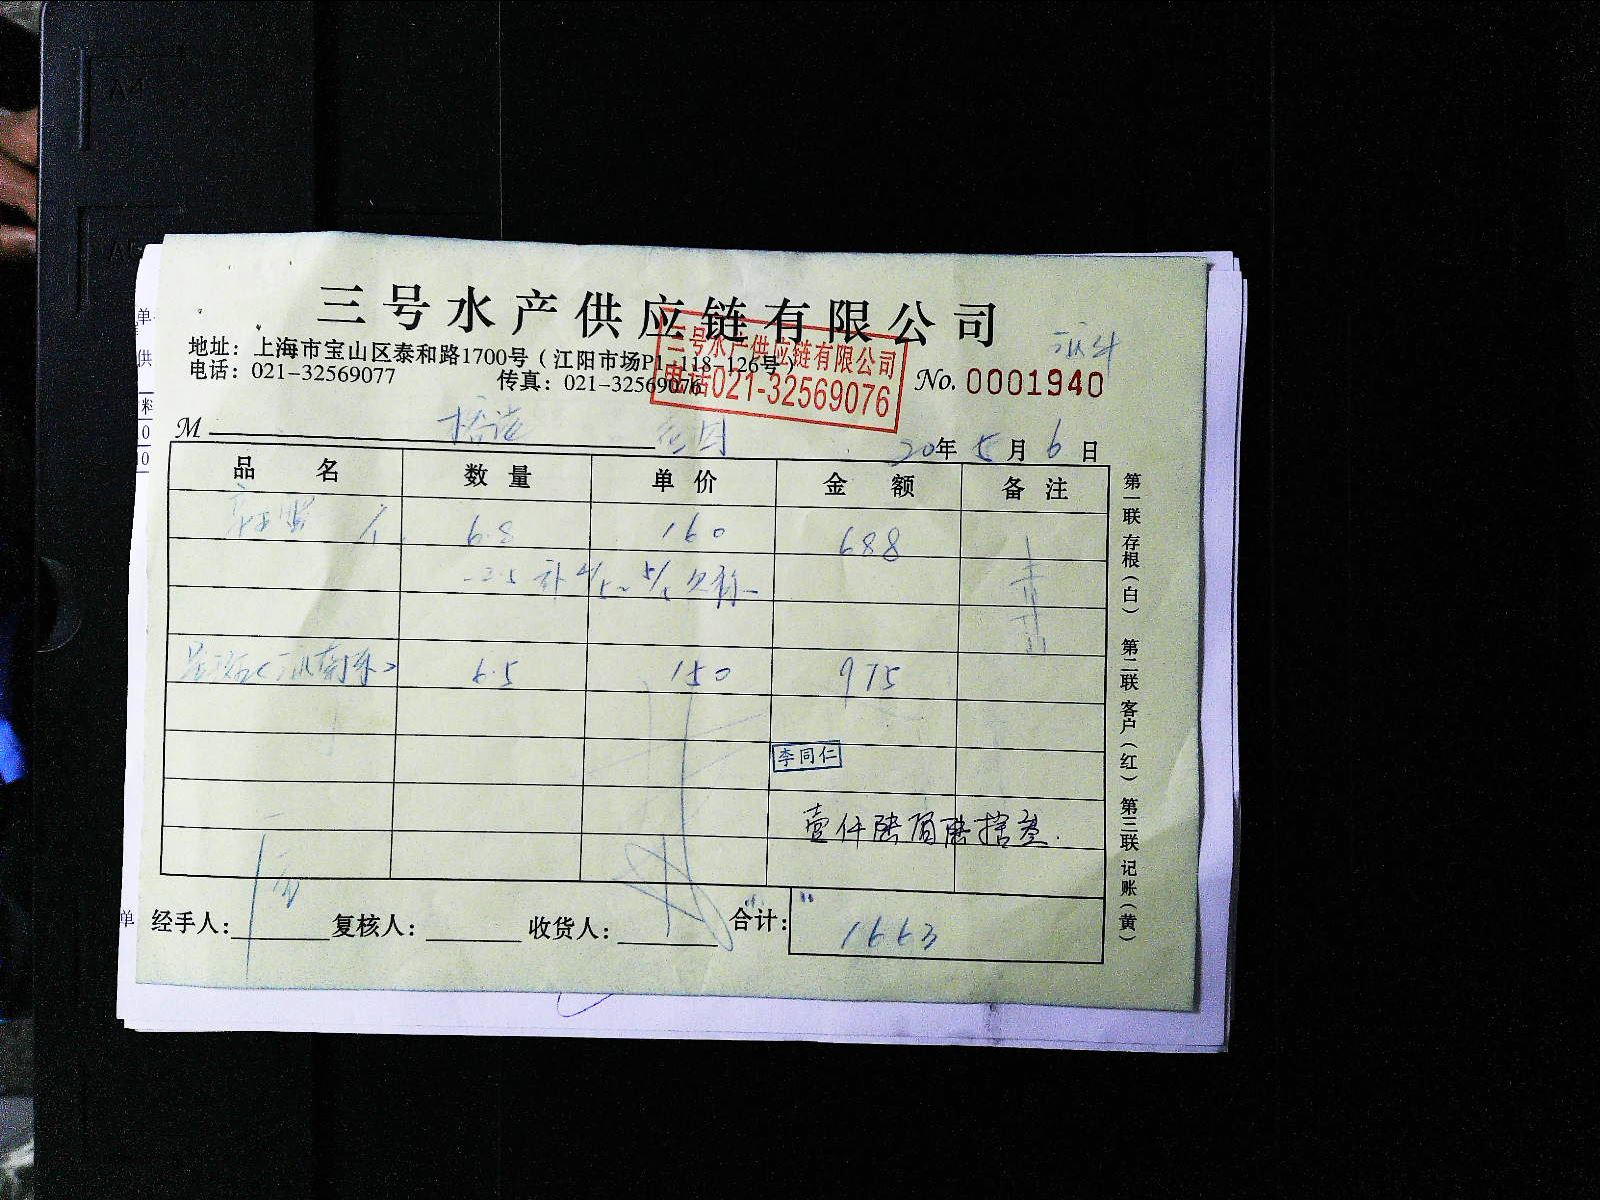 三号水产供应链有限公司
地址：上海市宝山区泰和路1700号（江阳市场P1-118-126号）
电话：021-32569077 传真：021-32569076
三号水产供应链有限公司
电话021-32569076
No. 0001940
M
20年 5月 6日
品名 数量 单价 金额 备注
6.8 160 688
-2.5 补 4/5~5/5欠称-
6.5 150 975
李同仁
壹仟陆佰陆拾叁.
经手人： 复核人： 收货人： 合计： 1663
第一联 存根（白） 第二联 客户（红） 第三联 记账（黄）
A4
单
供
料
0
0
单